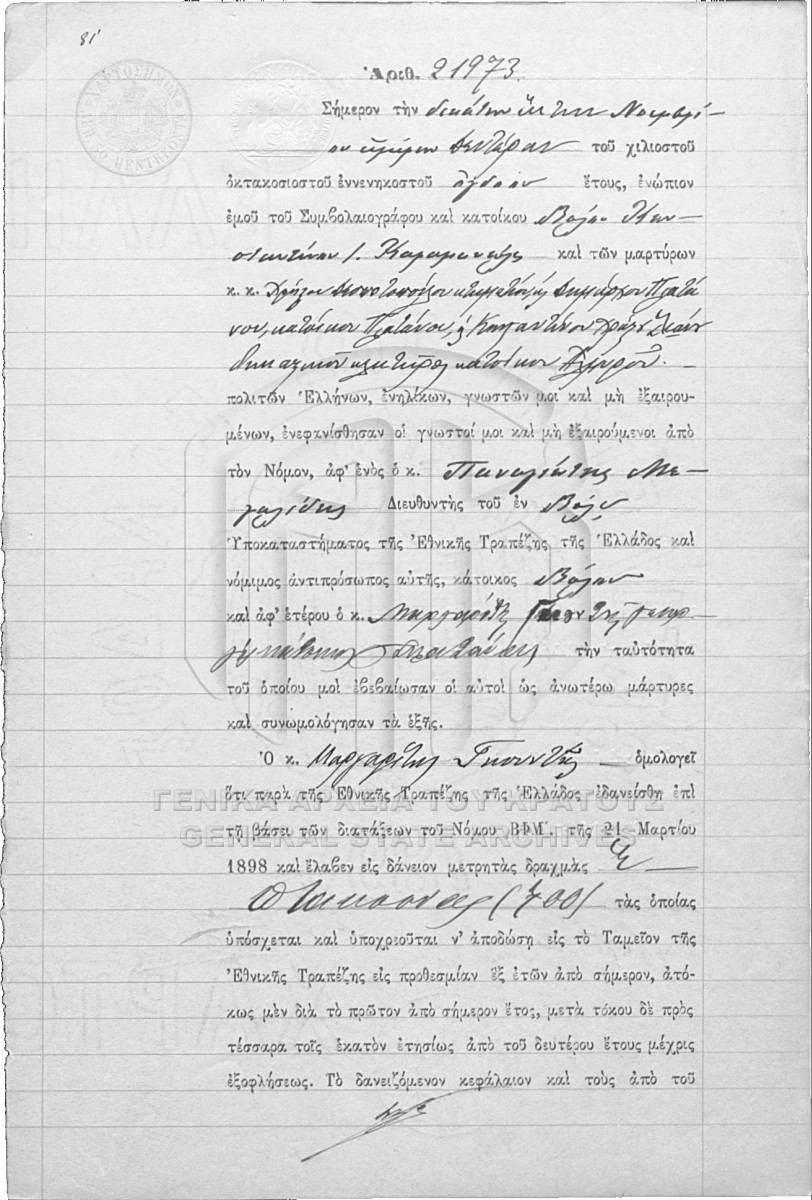 81
Ἀριθ. 21973.
Σήμερον τὴν δεκάτην ἕκτην Νοεμβρί-
ου ἡμέραν Δευτέραν τοῦ χιλιοστοῦ
ὀκτακοσιοστοῦ ἐννενηκοστοῦ ὀγδόου ἔτους, ἐνώπιον
ἐμοῦ τοῦ Συμβολαιογράφου καὶ κατοίκου Βόλου Κων-
σταντίνου Ι. καὶ τῶν μαρτύρων
κ. κ. Δημάρχου Πλατά-
νου, κατοίκου Πλατάνου, Κωνσταντίνου
δικαστικοῦ κλητῆρος κατοίκου Ἁλμυροῦ. -
πολιτῶν Ἑλλήνων, ἐνηλίκων, γνωστῶν μοι καὶ μὴ ἐξαιρου-
μένων, ἐνεφανίσθησαν οἱ γνωστοί μοι καὶ μὴ ἐξαιρούμενοι ἀπὸ
τὸν Νόμον, ἀφ’ ἑνὸς ὁ κ. Παναγιώτης Με-
Διευθυντὴς τοῦ ἐν Βόλῳ
Ὑποκαταστήματος τῆς Ἐθνικῆς Τραπέζης τῆς Ἑλλάδος καὶ
νόμιμος ἀντιπρόσωπος αὐτῆς, κάτοικος Βόλου
καὶ ἀφ’ ἑτέρου ὁ κ. Μαργαρίτης
κάτοικος Πλατάνου τὴν ταὐτότητα
τοῦ ὁποίου μοὶ ἐβεβαίωσαν οἱ αὐτοὶ ὡς ἀνωτέρω μάρτυρες
καὶ συνωμολόγησαν τὰ ἑξῆς.
Ὁ κ. Μαργαρίτης ὁμολογεῖ
ὅτι παρὰ τῆς Ἐθνικῆς Τραπέζης τῆς Ἑλλάδος ἐδανείσθη ἐπὶ
ΓΕΝΙΚΑ ΑΡΧΕΙΑ ΤΟΥ ΚΡΑΤΟΥΣ
τῇ βάσει τῶν διατάξεων τοῦ Νόμου ΒΦΜ΄. τῆς 21 Μαρτίου
GENERAL STATE ARCHIVES
1898 καὶ ἔλαβεν εἰς δάνειον μετρητὰς δραχμὰς ἑ-
πτακοσίας (700) τὰς ὁποίας
ὑπόσχεται καὶ ὑποχρεοῦται ν’ ἀποδώσῃ εἰς τὸ Ταμεῖον τῆς
Ἐθνικῆς Τραπέζης εἰς προθεσμίαν ἓξ ἐτῶν ἀπὸ σήμερον, ἀτό-
κως μὲν διὰ τὸ πρῶτον ἀπὸ σήμερον ἔτος, μετὰ τόκου δὲ πρὸς
τέσσαρα τοῖς ἑκατὸν ἐτησίως ἀπὸ τοῦ δευτέρου ἔτους μέχρις
ἐξοφλήσεως. Τὸ δανειζόμενον κεφάλαιον καὶ τοὺς ἀπὸ τοῦ